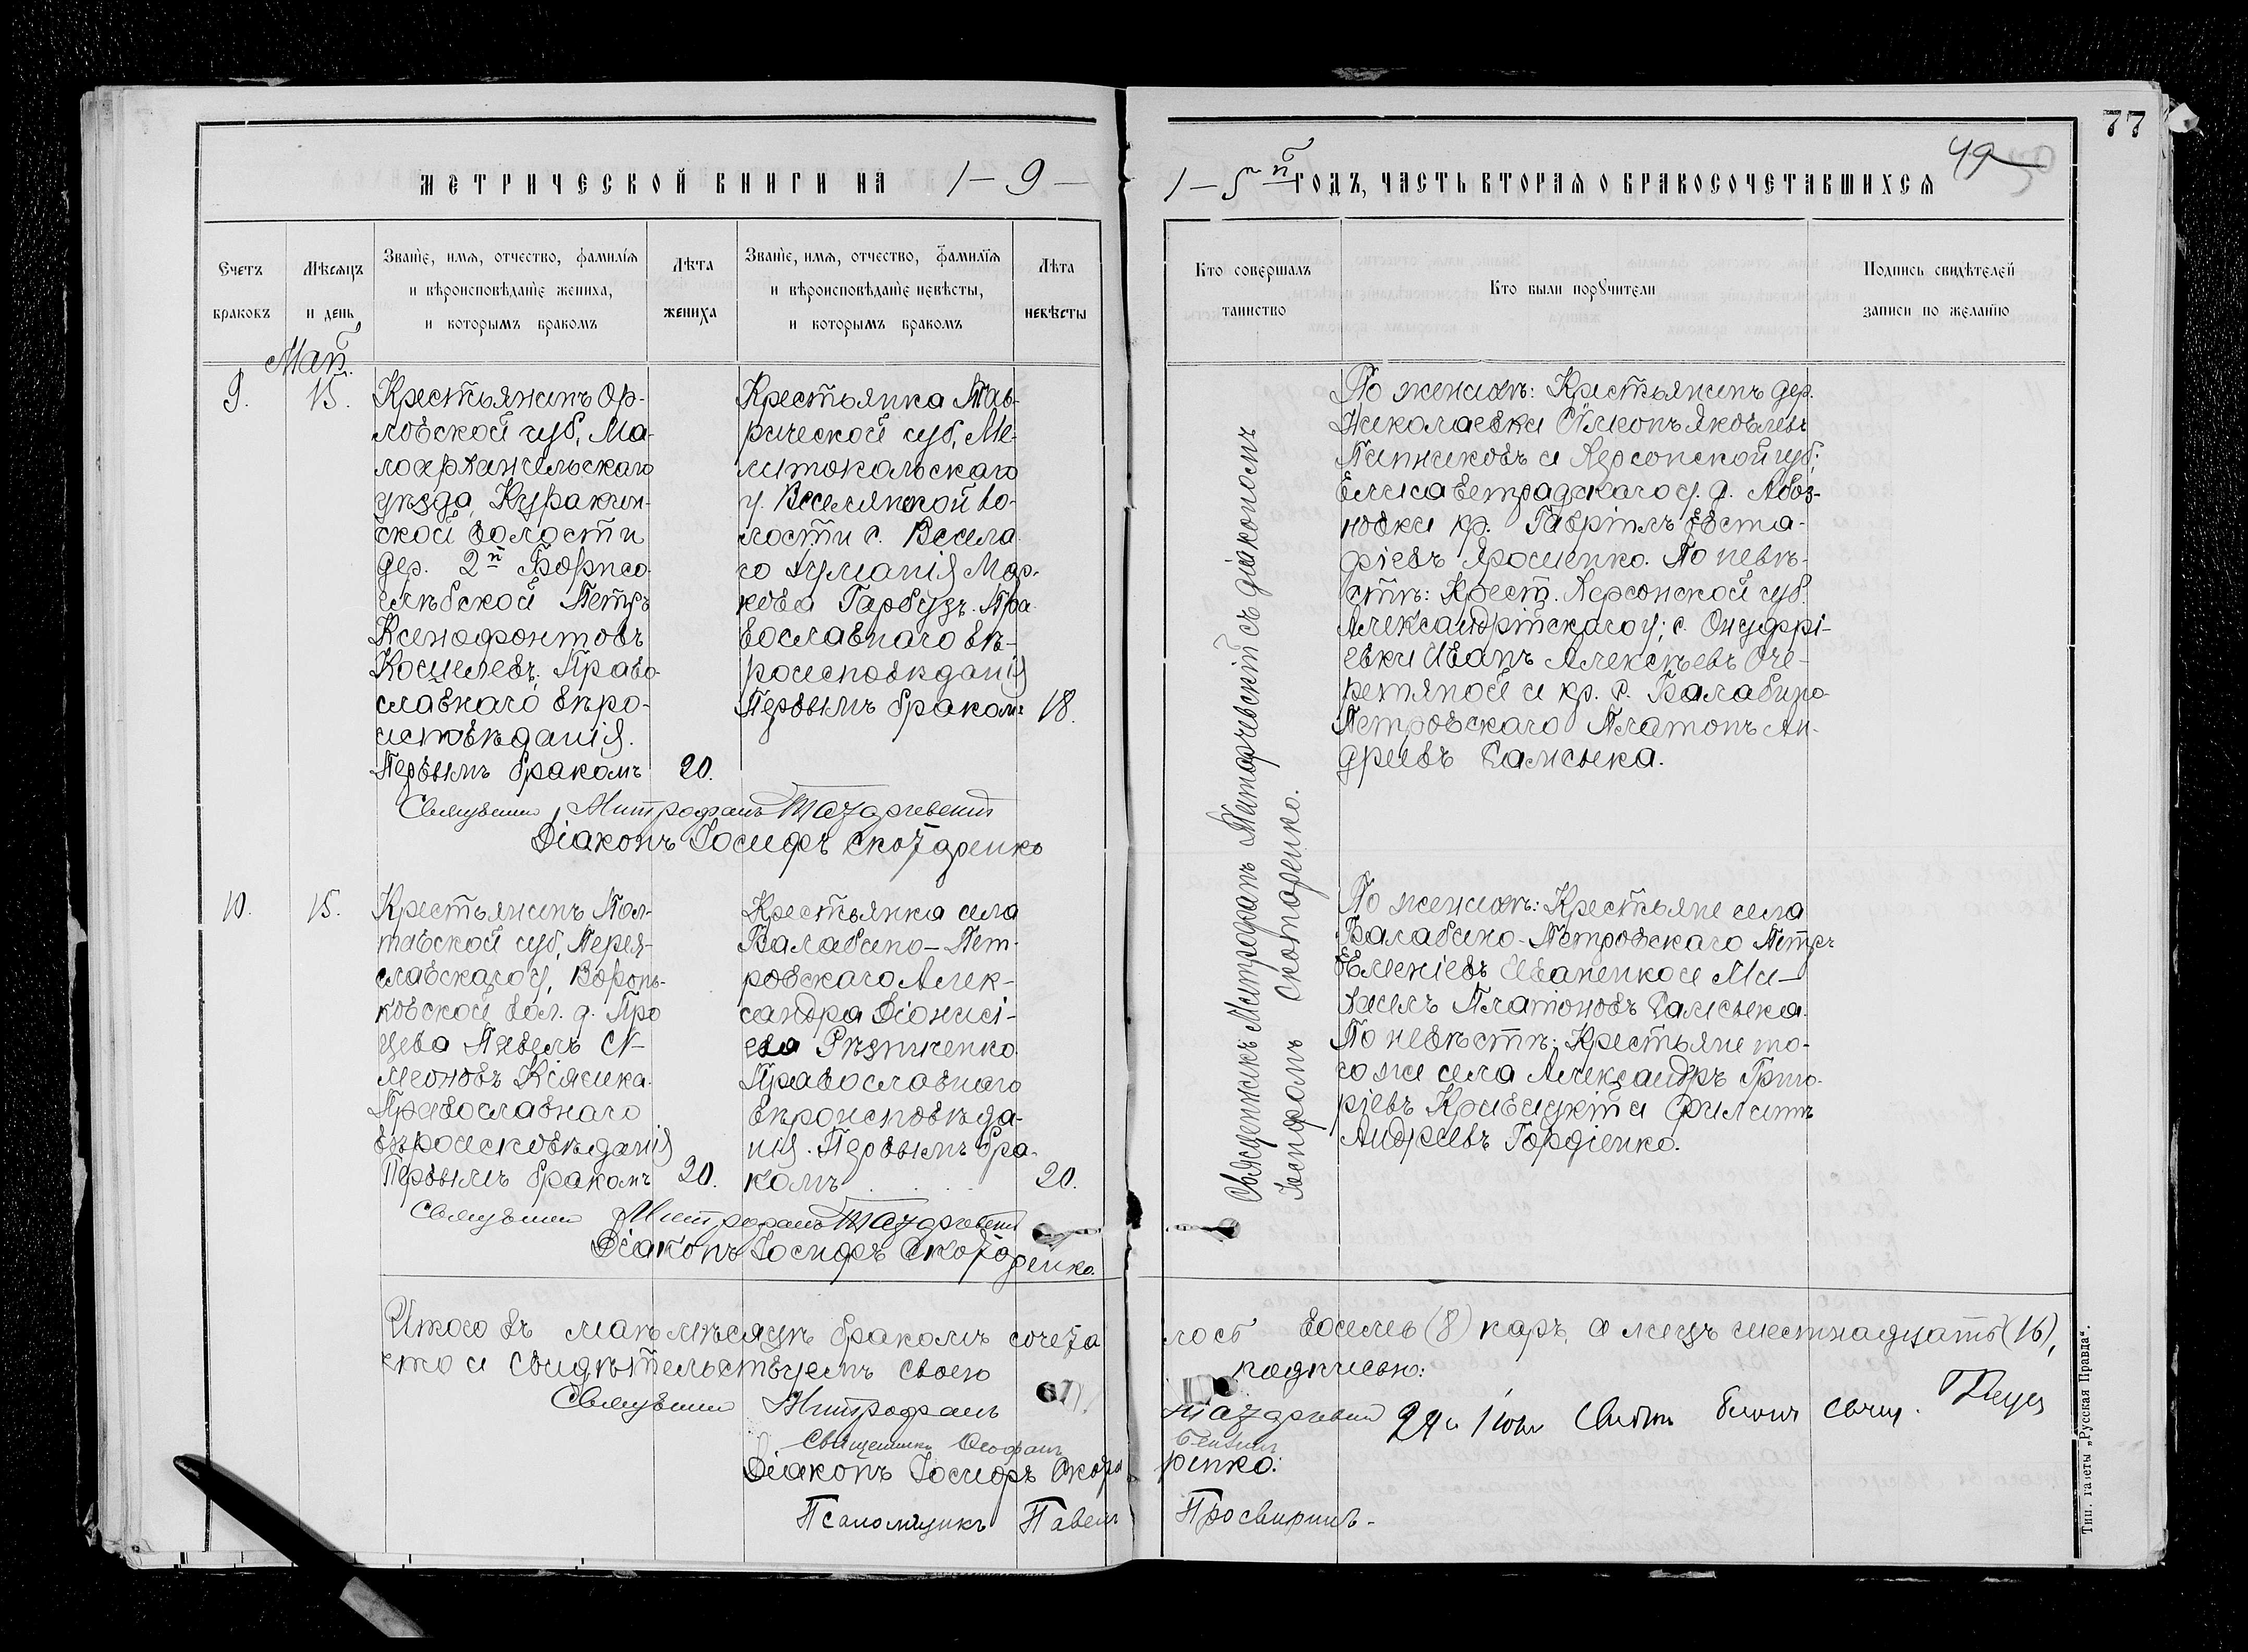 77
49
МЕТРИЧЕСКОЙ КНИГИ НА 1-9-
1-5й ГОДЪ, ЧАСТЬ ВТОРАЯ О БРАКОСОЧЕТАВШИХСЯ
Счетъ браковъ
Мѣсяцъ и день
Званіе, имя, отчество, фамилія
и вѣроисповѣданіе жениха,
и которымъ бракомъ
Лѣта жениха
Званіе, имя, отчество, фамилія
и вѣроисповѣданіе невѣсты,
и которымъ бракомъ
Лѣта невѣсты
Кто совершалъ таинство
Кто были порꙋчители
Подпись свидѣтелей
записи по желанію
Май.
9.
15.
Крестьянинъ Ор-
ловской губ, Ма-
лоархангельскаго
уѣзда, Куракин-
ской волости
дер. 2й Борисо
глѣбской Петръ
Ксенофонтовъ
Кошелевъ. Право
славнаго вѣро-
исповѣданія.
Первымъ бракомъ
20.
Крестьянка Тав-
рической губ, Ме-
литопольскаго
у. Веселянской во-
лости с. Весела
го Іуліанія Мар-
кова Гарбузъ. Пра
вославнаго вѣ-
роисповѣданія
Первымъ бракомъ
18.
Священникъ Митрофанъ
Діаконъ Іосифъ Скотаренко
Священникъ Митрофанъ съ діакономъ
Іосифомъ Скотаренко.
По женихѣ: Крестьянинъ дер.
Николаевки Сѵмеонъ Яковлевъ
и Херсонской губ;
Елисаветградскаго у. д. Абоз-
новки кр. Гавріилъ Евста-
фіевъ Ярошенко. По невѣ-
стѣ: Крест. Херсонской губ.
Александрійскаго у; с. Онуфрі-
евки Иванъ Алексѣевъ Оче-
ретяной и кр. с. Балабино
Петровскаго Платонъ Ан-
дреевъ Самсыка.
10.
15.
Крестьянинъ Пол-
тавской губ, Перея-
славскаго у, Воронь-
ковской вол. д. Про
цева Павелъ Сѵ-
меоновъ
Православнаго
вѣроисповѣданія
Первымъ бракомъ
20.
Крестьянка села
Балабино-Пет-
ровскаго Алек-
сандра Діонисі-
ева Рѣзниченко
Православнаго
вѣроисповѣда-
нія. Первымъ бра-
комъ
20.
Священникъ Митрофанъ
Діаконъ Іосифъ Скотаренко.
По женихѣ: Крестьяне села
Балабино-Петровскаго Петръ
Иваненко и Ми-
хаилъ Платоновъ Самсыка.
По невѣстѣ: Крестьяне то-
го же села Александръ Григо-
ріевъ Кривицкій и Филиппъ
Андреевъ Гордіенко.
Итого въ маѣ мѣсяцѣ бракомъ сочета
лось восемь (8) паръ, а лицъ шестнадцать (16),
что и свидѣтельствуемъ своею подписью:
Священникъ Митрофанъ
Священникъ Ѳеофанъ
Діаконъ Іосифъ Скотаренко.
Псаломщикъ Павелъ Просвиринъ.
Тип. газеты „Русская Правда“.